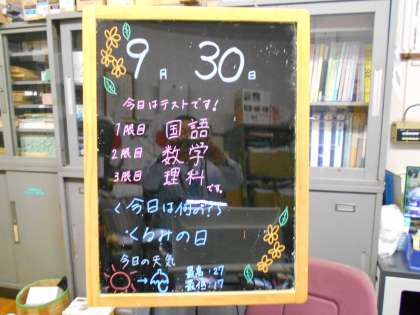 9月30日
今日はテストです!
1限目 国語
2限目 数学
3限目 理科
です。
<今日は何の?>
くるみの日
今日の天気
最高:27
最低:17